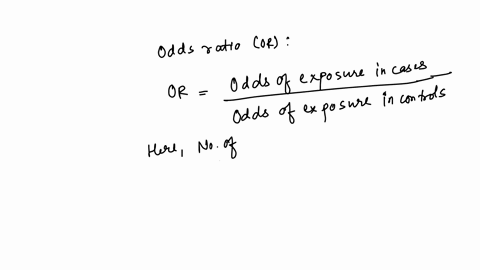 Odds ratio (OR) :
OR = Odds of exposure in cases
Odds of exposure in controls
Here, No. of